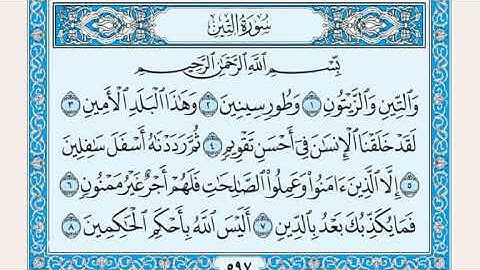 سُورَةُ التِّينِ
بِسْمِ اللَّهِ الرَّحْمَٰنِ الرَّحِيمِ
وَالتِّينِ وَالزَّيْتُونِ ١ وَطُورِ سِينِينَ ٢ وَهَٰذَا الْبَلَدِ الْأَمِينِ ٣
لَقَدْ خَلَقْنَا الْإِنسَانَ فِي أَحْسَنِ تَقْوِيمٍ ٤ ثُمَّ رَدَدْنَاهُ أَسْفَلَ سَافِلِينَ
٥ إِلَّا الَّذِينَ ءَامَنُوا وَعَمِلُوا الصَّالِحَاتِ فَلَهُمْ أَجْرٌ غَيْرُ مَمْنُونٍ ٦
فَمَا يُكَذِّبُكَ بَعْدُ بِالدِّينِ ٧ أَلَيْسَ اللَّهُ بِأَحْكَمِ الْحَاكِمِينَ ٨
٥٩٧